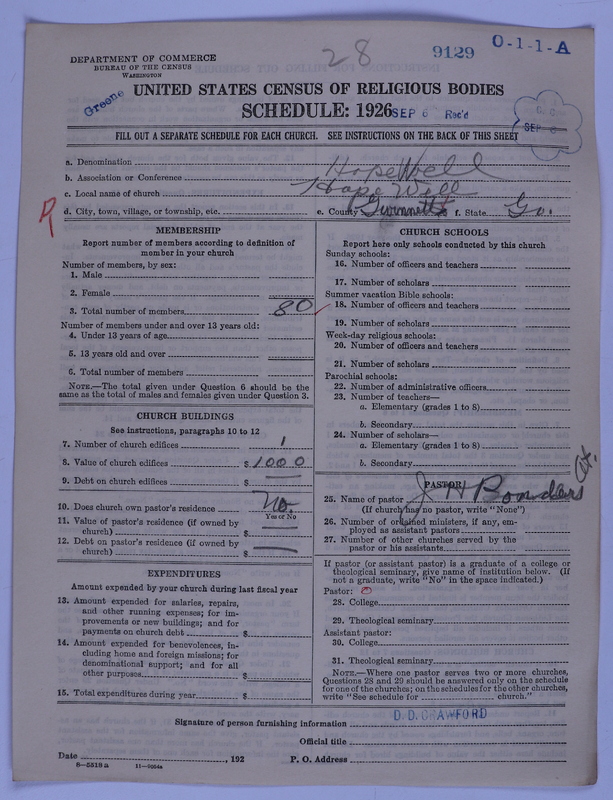 28 9129 0-1-1-A
DEPARTMENT OF COMMERCE
BUREAU OF THE CENSUS
WASHINGTON
Greene
UNITED STATES CENSUS OF RELIGIOUS BODIES
SCHEDULE: 1926
SEP 6 Rec'd
SEP
FILL OUT A SEPARATE SCHEDULE FOR EACH CHURCH. SEE INSTRUCTIONS ON THE BACK OF THIS SHEET
a. Denomination
b. Association or Conference HopeWell
c. Local name of church Hope Well
d. City, town, village, or township, etc. e. County Gwinnett f. State Ga.
MEMBERSHIP
Report number of members according to definition of
member in your church
Number of members, by sex:
1. Male
2. Female
3. Total number of members 80
Number of members under and over 13 years old:
4. Under 13 years of age
5. 13 years old and over
6. Total number of members
NOTE.—The total given under Question 6 should be the
same as the total of males and females given under Question 3.
CHURCH BUILDINGS
See instructions, paragraphs 10 to 12
7. Number of church edifices 1
8. Value of church edifices $ 1000
9. Debt on church edifices $ —
10. Does church own pastor's residence No.
Yes or No
11. Value of pastor's residence (if owned by
church) $ —
12. Debt on pastor's residence (if owned by
church) $ —
EXPENDITURES
Amount expended by your church during last fiscal year
13. Amount expended for salaries, repairs,
and other running expenses; for im-
provements or new buildings; and for
payments on church debt $
14. Amount expended for benevolences, in-
cluding home and foreign missions; for
denominational support; and for all
other purposes $
15. Total expenditures during year $
CHURCH SCHOOLS
Report here only schools conducted by this church
Sunday schools:
16. Number of officers and teachers
17. Number of scholars
Summer vacation Bible schools:
18. Number of officers and teachers
19. Number of scholars
Week-day religious schools:
20. Number of officers and teachers
21. Number of scholars
Parochial schools:
22. Number of administrative officers
23. Number of teachers—
a. Elementary (grades 1 to 8)
b. Secondary
24. Number of scholars—
a. Elementary (grades 1 to 8)
b. Secondary
PASTOR
25. Name of pastor J H Bonders
(If church has no pastor, write "None")
26. Number of ordained ministers, if any, em-
ployed as assistant pastors
27. Number of other churches served by the
pastor or his assistants
If pastor (or assistant pastor) is a graduate of a college or
theological seminary, give name of institution below. (If
not a graduate, write "No" in the space indicated.)
Pastor:
28. College
29. Theological seminary
Assistant pastor:
30. College
31. Theological seminary
NOTE.—Where one pastor serves two or more churches,
Questions 28 and 29 should be answered only on the schedule
for one of the churches; on the schedules for the other churches,
write "See schedule for church."
Signature of person furnishing information D. D. CRAWFORD
Official title
Date , 192 P. O. Address
8—5518 a 11—9064a